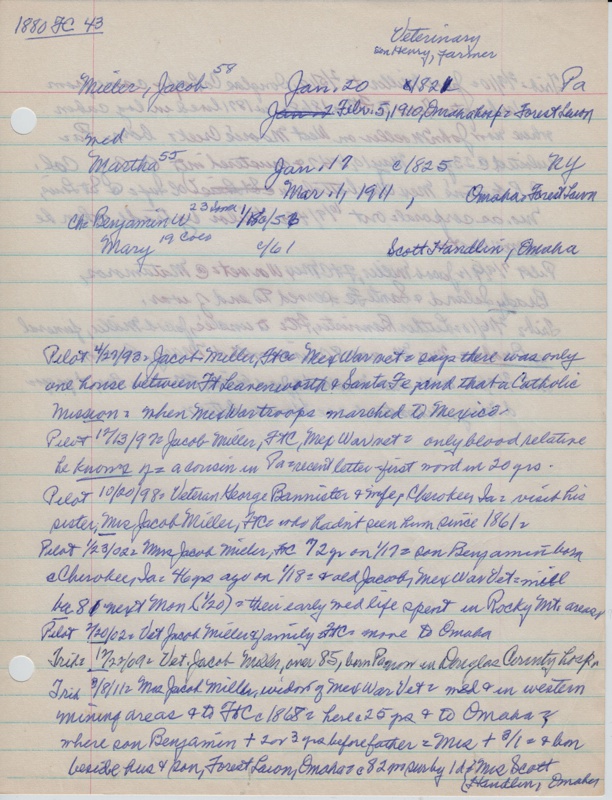 1880 FC 43
Veterinary
son Henry, farmer
Miller, Jacob 58 Jan. 20 1821 Pa
Feb. 5, 1910, Omaha hosp = Forest Lawn
med
Martha 55 Jan. 17 c/1825 NY
Mar. 1, 1911, Omaha = Forest Lawn
Ch: Benjamin W 23 Iowa
Mary 19 Colo c/61 Scott Handlin, Omaha
Pilot 4/27/93 = Jacob Miller, FtC = Mex War vet = says there was only
one house between Ft Leavenworth & Santa Fe, and that a Catholic
Mission = when Mex War troops marched to Mexico.
Pilot 12/13/97 = Jacob Miller, FtC, Mex War vet = only blood relative
he knows of = a cousin in Pa = recent letter = first word in 20 yrs.
Pilot 10/20/98 = Veteran George Bannister & wife, Cherokee, Ia = visit his
sister, Mrs Jacob Miller, FtC = who hadn't seen him since 1861 =
Pilot 1/23/02 = Mrs Jacob Miller, FtC 72 yr on 1/17 = son Benjamin born
c Cherokee, Ia = 46 yrs ago on 1/18 = & old Jacob, Mex War Vet = will
be 81 next Mon (1/20) = their early med life spent in Rocky Mt. areas
Pilot 2/20/02 = Vet Jacob Miller & family FtC = move to Omaha
Trib = 12/27/09 = Vet, Jacob Miller, over 85, born Pa now in Douglas County hosp.
Trib 3/8/11 = Mrs Jacob Miller, widow of Mex War Vet = med & in western
mining areas & to FtC c 1868 = here c 25 yrs & to Omaha
where son Benjamin + 2 or 3 yrs before father = Mrs + 3/1 = & bur
beside hus & son, Forest Lawn, Omaha = c 82 m sur by 1 d = Mrs Scott
Handlin, Omaha